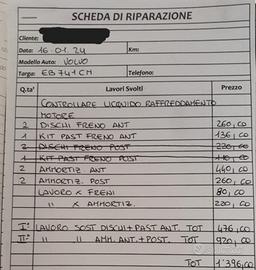 SCHEDA DI RIPARAZIONE
Cliente:
Data: 16.01.24 Km:
Modello Auto: VOLVO
Targa: EB741CM Telefono:
Q.ta' Lavori Svolti Prezzo
CONTROLLARE LIQUIDO RAFFREDDAMENTO
MOTORE
2 DISCHI FRENO ANT 260,00
1 KIT PAST FRENO ANT 136,00
2 DISCHI FRENO POST 220,00
1 KIT PAST FRENO POST
2 AMMORTIZ ANT 440,00
2 AMMORTIZ. POST 260,00
LAVORO X FRENI 80,00
" X AMMORTIZ. 220,00
I° LAVORO SOST DISCHI+PAST ANT. TOT 476,00
II° " " AMM. ANT.+POST. TOT 920,00
TOT 1'396,00